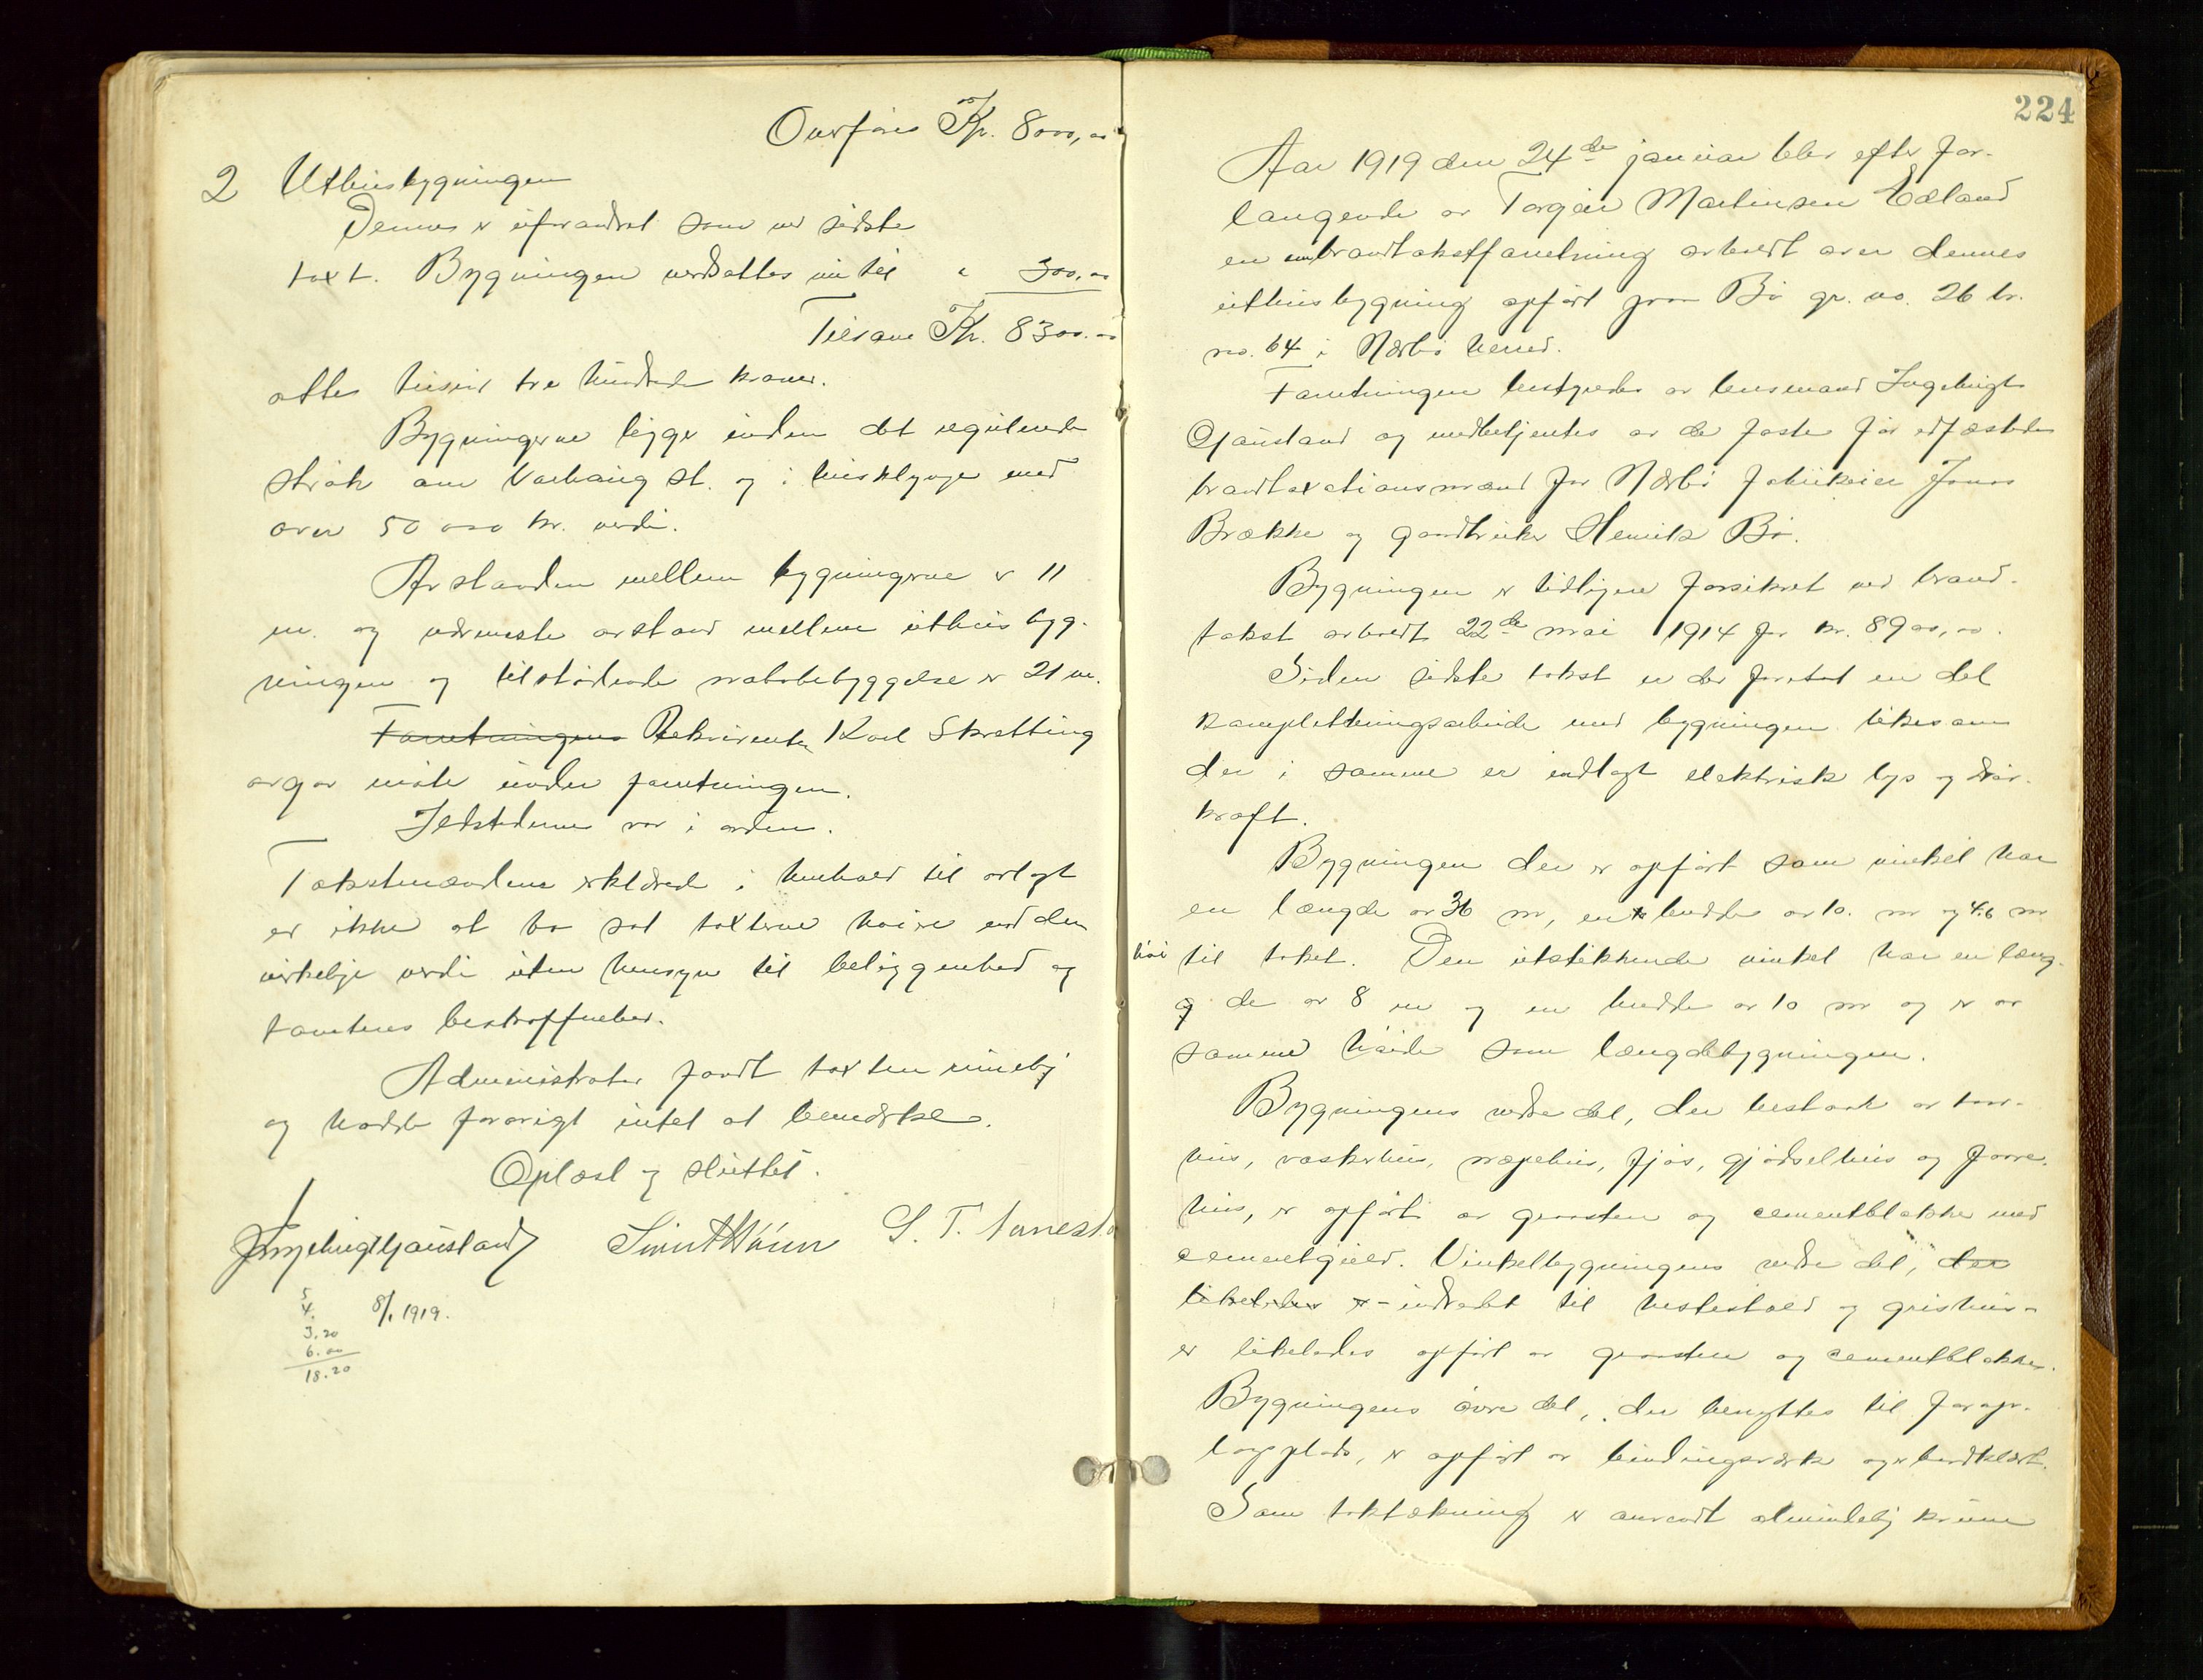 Overføres Kr. 8000,00
2 Uthusbygningen
Denne er uforandret som ved sidste
taxt. Bygningen verdsattes nu til " 300,00
Tilsam Kr. 8300.00
otte tusind tre hundrede kroner.
Bygningerne ligger inden det regulerede
strøk om Varhaug st. og i husklynge med
over 50 000 kr. verdi.
Avstanden mellem bygningerne er 11
m. og nærmeste avstand mellem uthusbyg-
ningen og tilstødende nabobebyggelse er 21 m.
Forretningens Rekvirenten Karl Skretting
avgav møte under forretningen.
Ildstederne var i orden.
Takstmændene erklærede i henhold til avlagt
ed ikke at ha sat taxterne høiere end den
virkelige verdi uten hensyn til beliggenhed og
tomtens beskaffenhed.
Administrator fandt taxten rimelig
og hadde forøvrigt intet at bemerke.
Oplæst og sluttet.
Ingebrigt Gausland S. T. Aanesta
5
4. 8/1 1919.
3.20
6.00
18.20
224
Aar 1919 den 24de januar blev efter for-
langende av Torgeir Martinsen Edland
en ombrandtakstforretning avholdt over dennes
uthusbygning opført paa Bø gr. no. 26 br.
no. 64 i Nærbø herred.
Forretningen bestyredes av lensmand Ingebrigt
Gausland og medbetjentes av de faste før edfæstede
brandtaxationsmænd for Nærbø fabrikeier Jonas
Brække og gaardbruker Henrik Bø.
Bygningen er tidligere forsikret ved brand-
takst avholdt 22de mai 1914 for kr. 8900,00.
Siden sidste takst er der foretat en del
kompletteringsarbeide med bygningen likesom
der i samme er indlagt elektrisk lys og driv-
kraft.
Bygningen der er opført som vinkel har
en længde av 36 m, en bredde av 10. m og 4.6 m
høi til taket. Den utstikkende vinkel har en læng-
de av 8 m og en bredde av 10 m og er av
samme høide som længdebygningen.
Bygningens nedre del, der bestaar av torv-
hus, vaskehus, næpehus, fjøs, gjødselhus og faare-
hus, er opført av graasten og cementblokker med
cementgulv. Vinkelbygningens nedre del, der
likeledes er - indredet til hestestald og grishus -
er likeledes opført av graasten og cementblokker.
Bygningens øvre del, der benyttes til forop-
lagsplads, er opført av bindingsverk og er bordklædt.
Som taktækning er anvendt almindelig krum